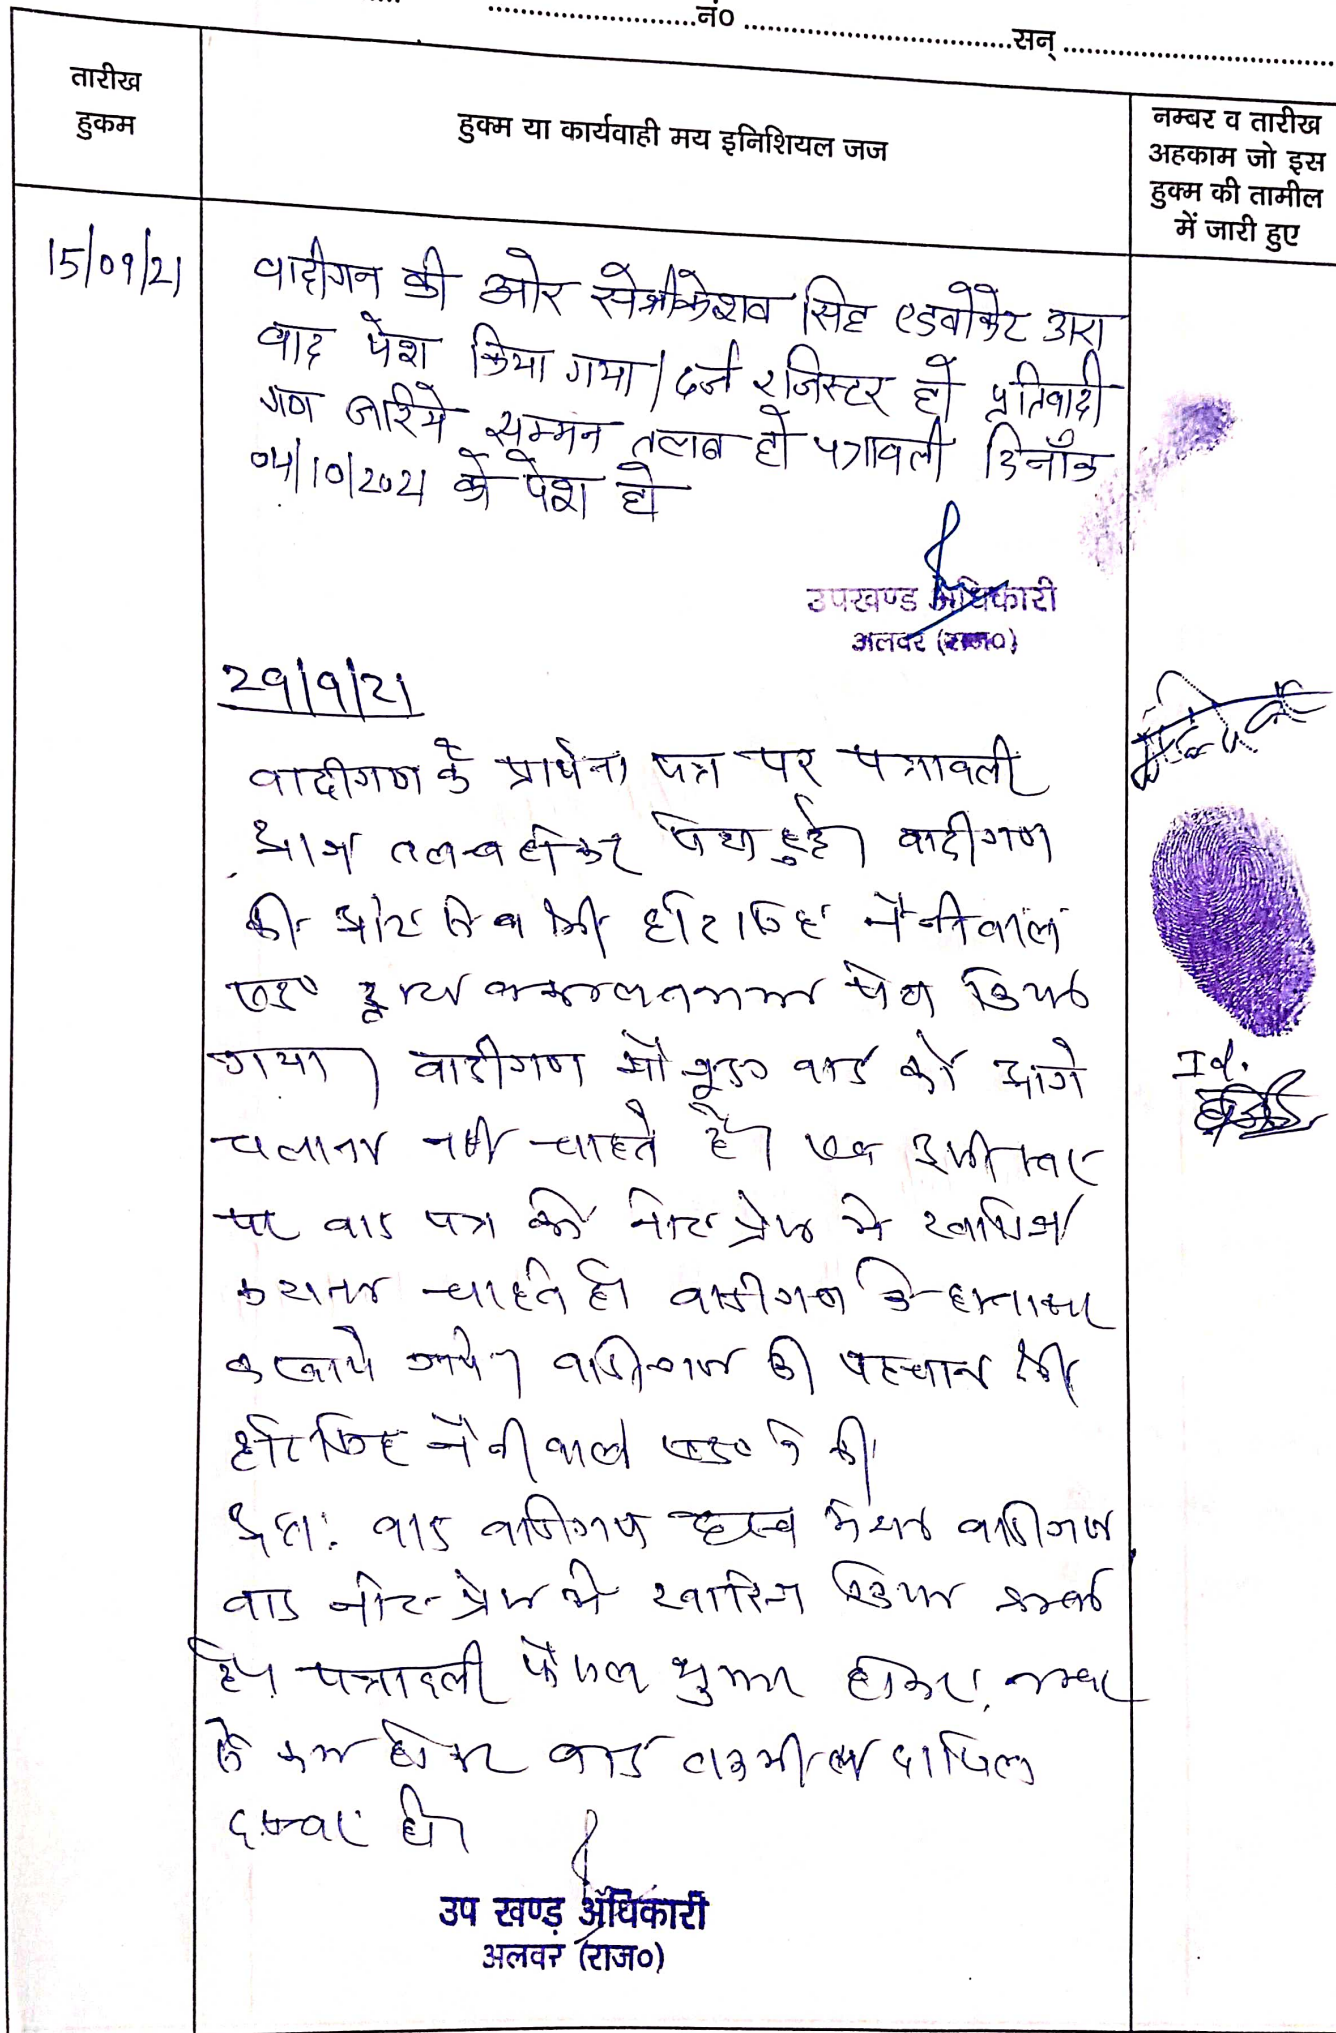 नं० सन्
तारीख
हुकम
हुक्म या कार्यवाही मय इनिशियल जज
नम्बर व तारीख
अहकाम जो इस
हुक्म की तामील
में जारी हुए
15/09/21
वादीगन की ओर से श्री केशव सिंह एडवोकेट द्वारा
वाद पेश किया गया। दर्ज रजिस्टर हो प्रतिवादी
गण जरिये सम्मन तलब हो पत्रावली दिनाँक
04/10/2021 को पेश हो
उपखण्ड अधिकारी
अलवर (राज०)
29/9/21
वादीगण के प्रार्थना पत्र पर पत्रावली
आज तलब होकर पेश हुई। वादीगण
की ओर से व श्री हरिसिंह नैनीवाल
एड० द्वारा वकालतनामा पेश किया
गया। वादीगण मौजूदा वाद को आगे
चलाना नही चाहते है। एवं इसी स्तर
पर वाद पत्र को नोट प्रेस मे खारिज
कराना चाहते है। वादीगण के हस्ताक्षर
करवाये जावे। वादीगण की पहचान श्री
हरिसिंह नैनीवाल एड० ने की।
अतः वाद वादीगण वादीगण
वाद नोट प्रेस मे खारिज किया जाता
है। पत्रावली फैसल शुमार होकर नम्बर
से कम होकर बाद तकमील दाखिल
दफ्तर हो।
Id.
उप खण्ड़ अधिकारी
अलवर (राज०)